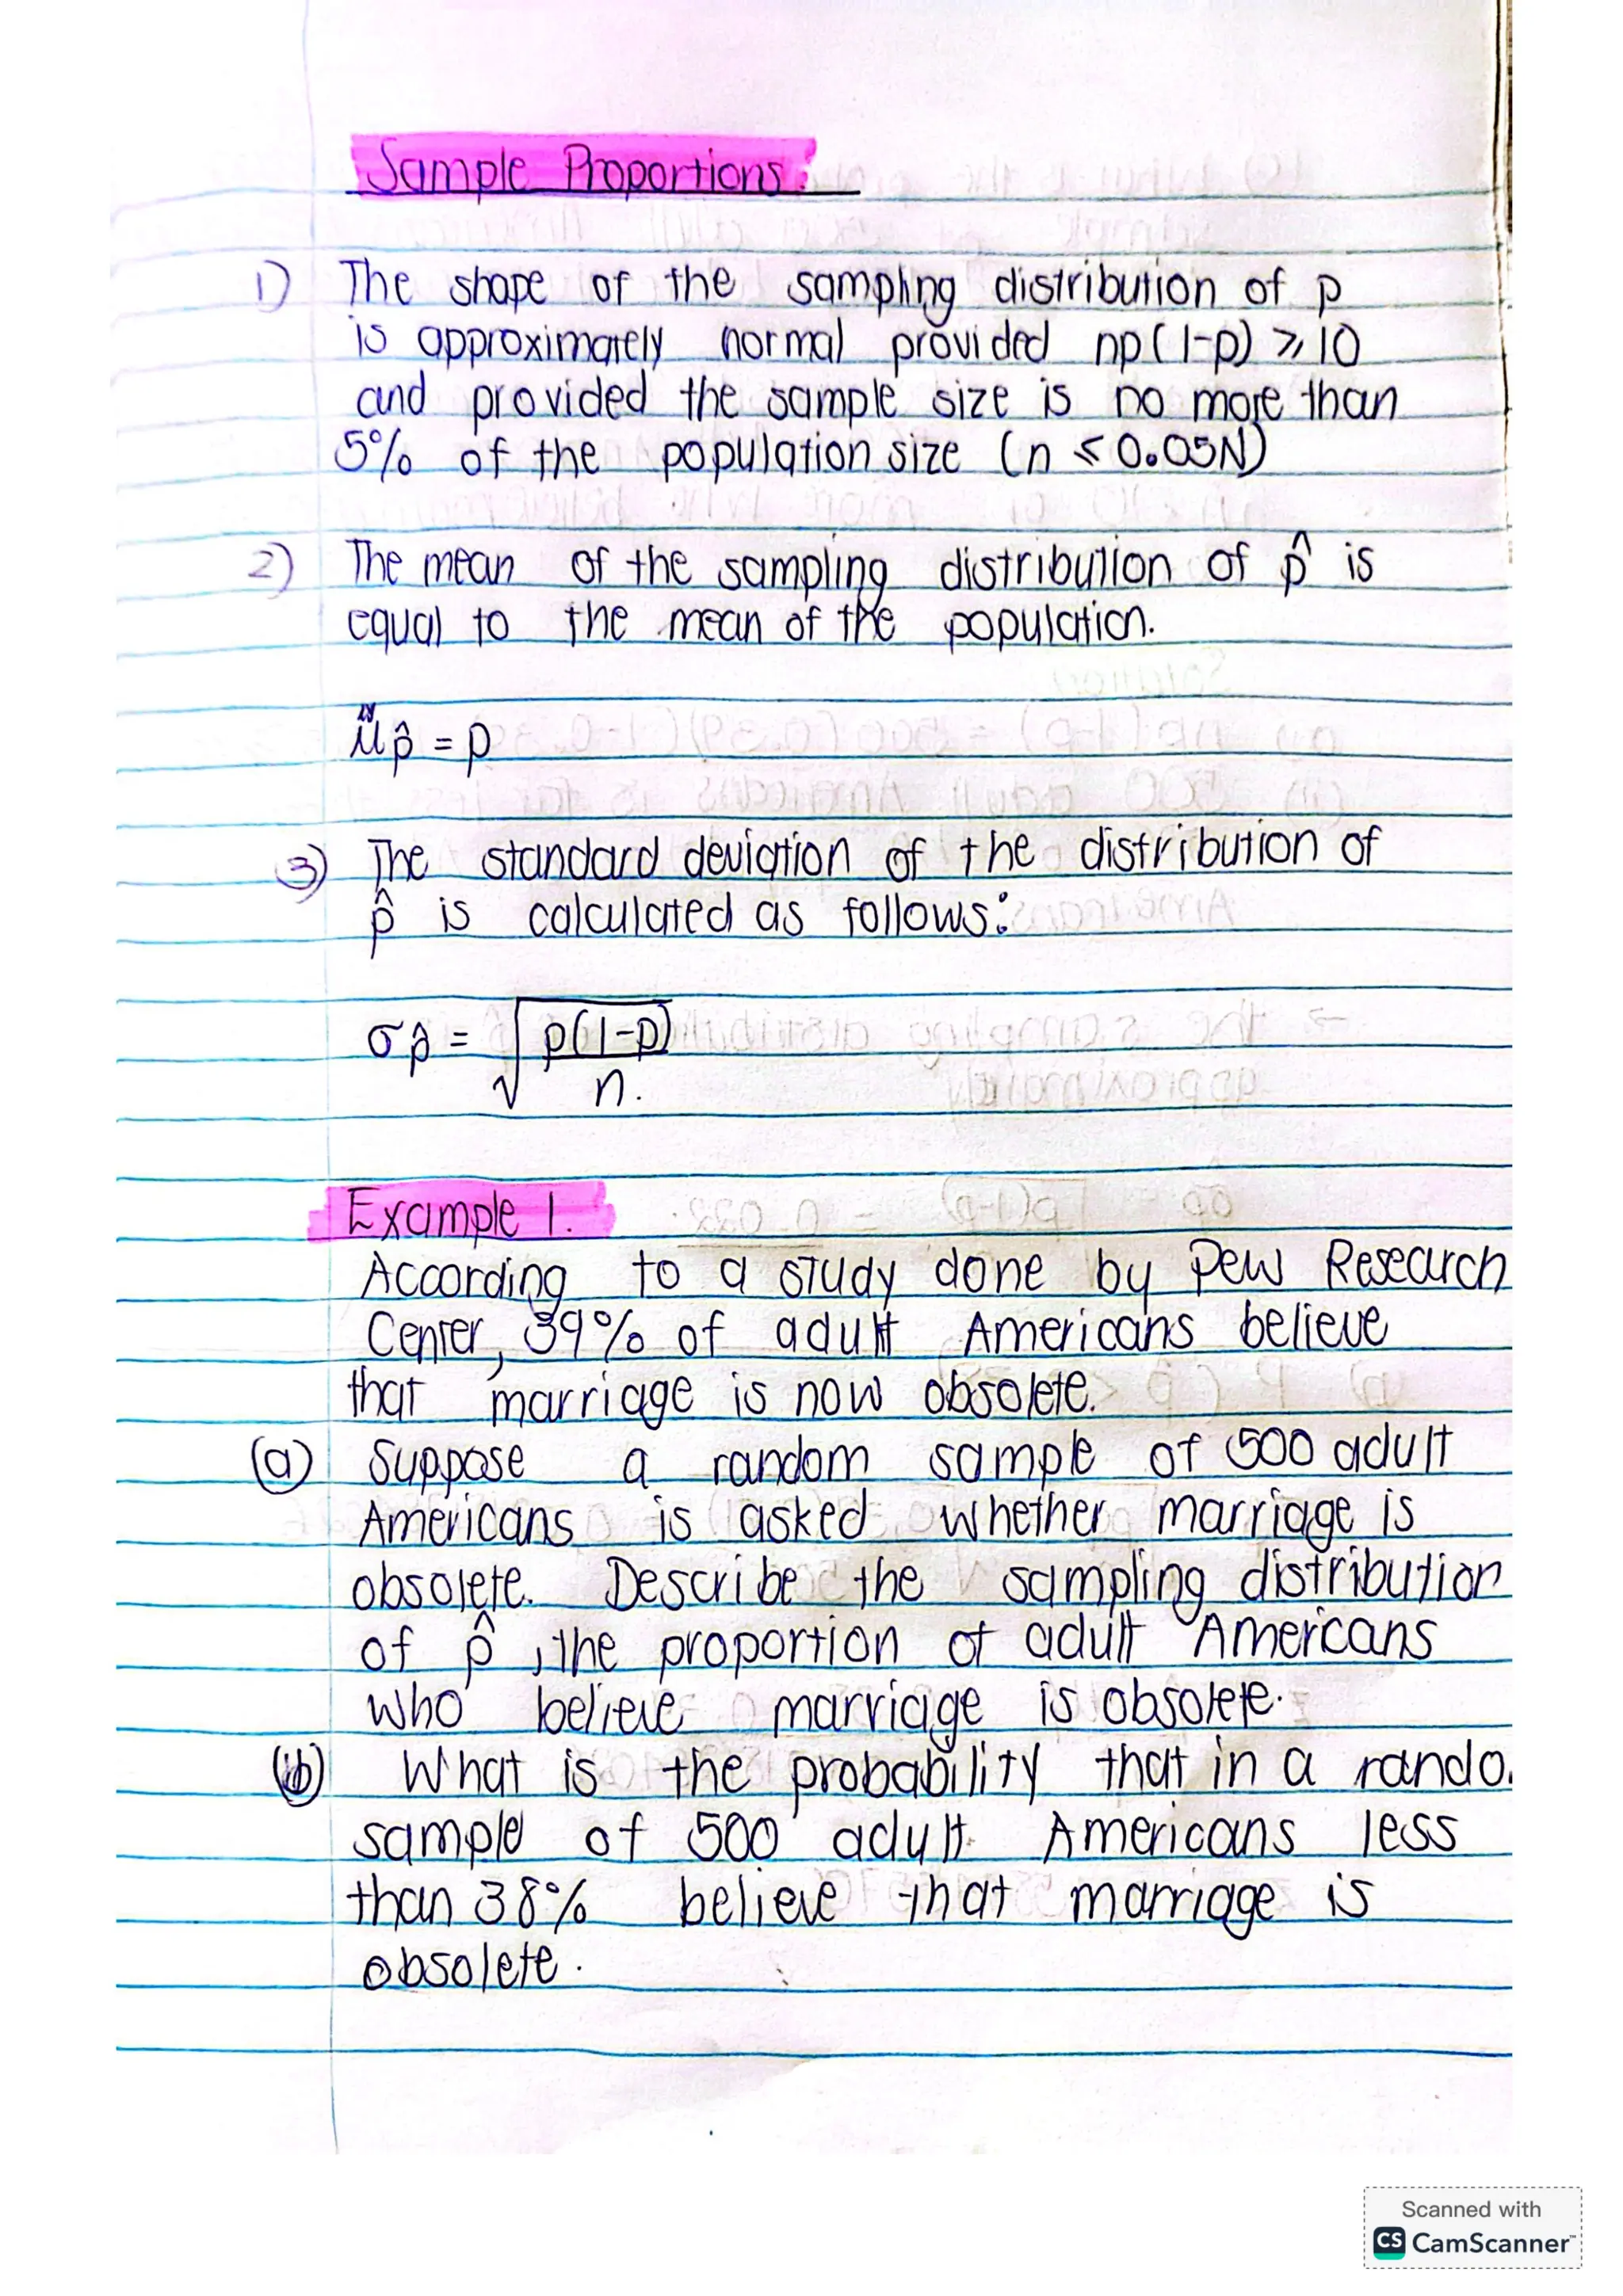 Sample Proportions.
1) The shape of the sampling distribution of p
is approximately normal provided np(1-p) ⩾ 10
and provided the sample size is no more than
5% of the population size (n ≤ 0.05N)
2) The mean of the sampling distribution of p̂ is
equal to the mean of the population.
μp̂ = p
3) The standard deviation of the distribution of
p̂ is calculated as follows:
σp̂ = √(p(1-p)/n).
Example 1.
According to a study done by Pew Research
Center, 39% of adult Americans believe
that marriage is now obsolete.
(a) Suppose a random sample of 500 adult
Americans is asked whether marriage is
obsolete. Describe the sampling distribution
of p̂, the proportion of adult Americans
who believe marriage is obsolete.
(b) What is the probability that in a rando
sample of 500 adult Americans less
than 38% believe that marriage is
obsolete.
Scanned with
CS CamScanner™